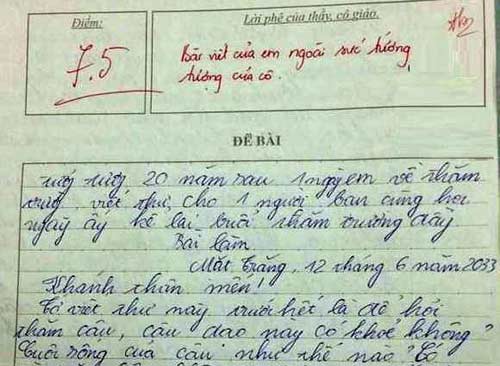 Điểm:
Lời phê của thầy, cô giáo.
7.5
Bài viết của em ngoài sức tưởng
tượng của cô.
ĐỀ BÀI
tưởng tượng 20 năm sau 1 ngày em về thăm
trường viết thư cho 1 người bạn cùng học
ngày ấy kể lại buổi thăm trường đầy
Bài làm
Mặt Trăng, 12 tháng 6 năm 2033
Khanh thân mến!
Tớ viết thư này trước hết là để hỏi
thăm cậu, cậu dạo này có khoẻ không
Cuộc sống của cậu như thế nào Có